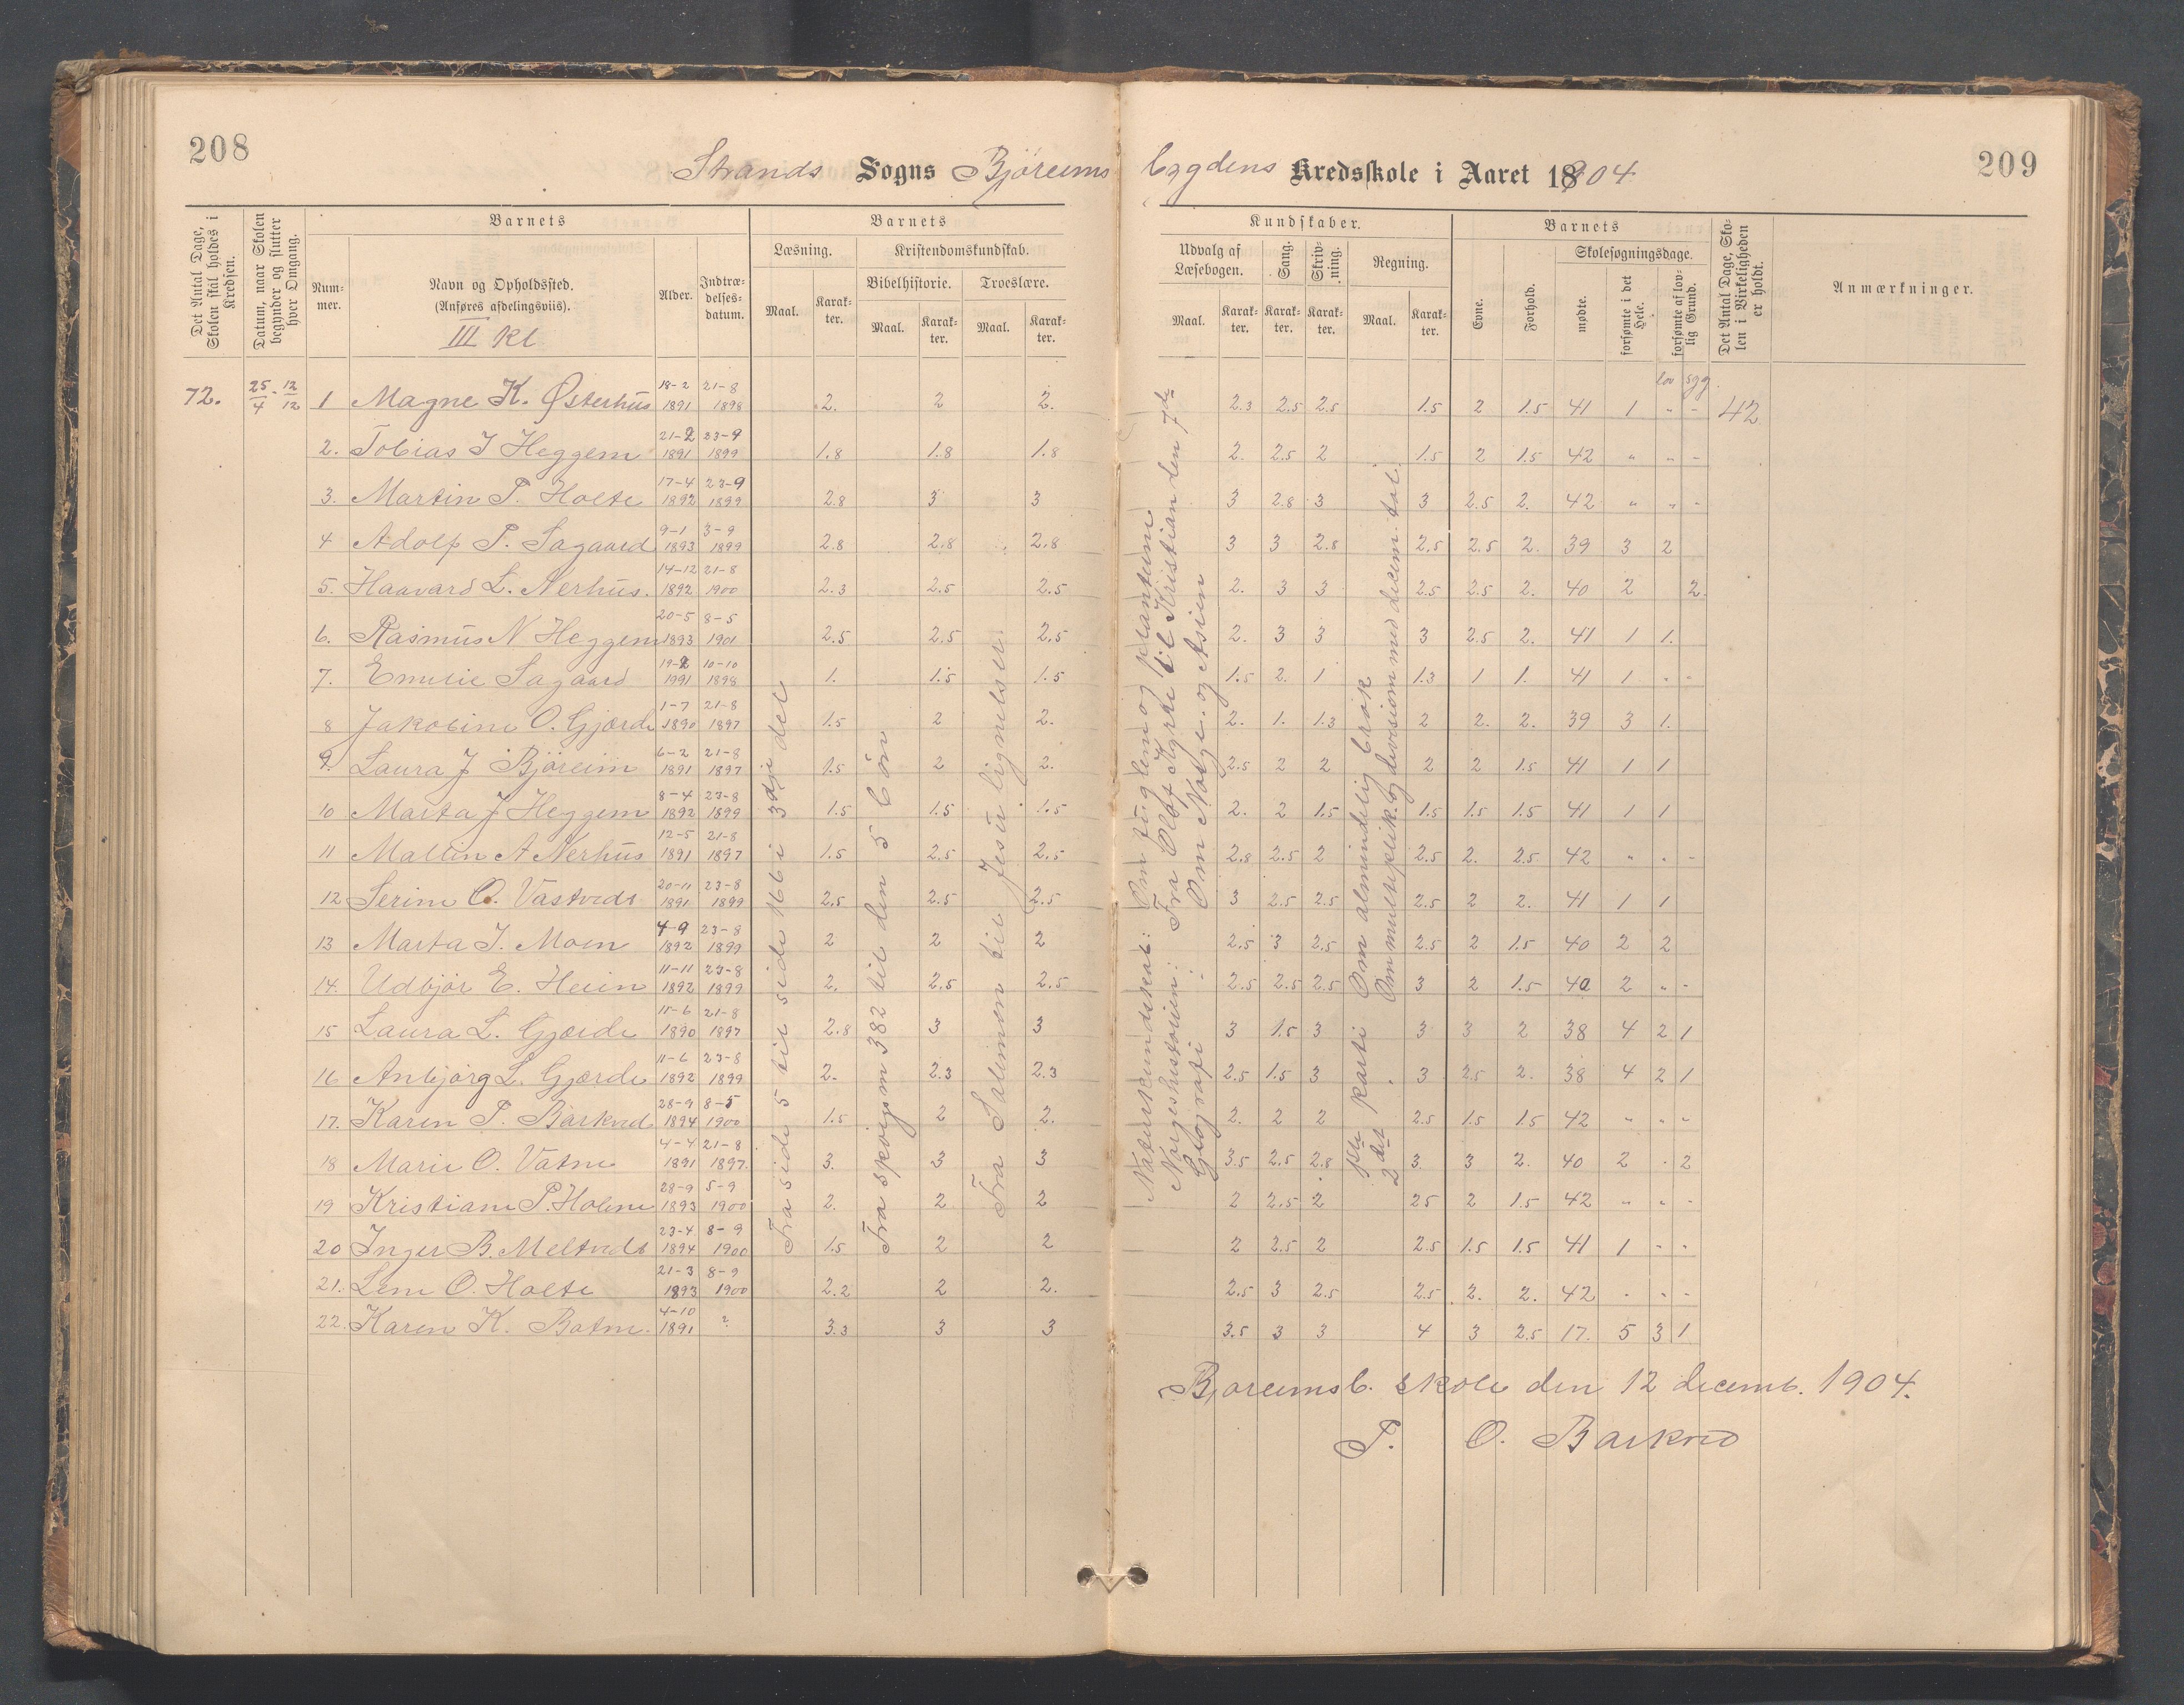 208
209
Strands Sogns Björeims bygdens Kredsskole i Aaret 18904.
Det Antal Dage, Skolen skal holdes i Kredsen.
Datum, naar Skolen begynder og slutter hver Omgang.
Barnets
Num-mer.
Navn og Opholdssted.
(Anføres afdelingsviis).
III Kl
Alder.
Indtræ-delses-datum.
Barnets
Læsning.
Kristendomskundskab.
Bibelhistorie.
Troeslære.
Maal. Karak-ter. Maal. Karak-ter. Maal. Karak-ter.
Kundskaber.
Udvalg af Læsebogen.
Sang.
Skriv-ning.
Regning.
Maal. Karak-ter. Karak-ter. Karak-ter. Maal. Karak-ter.
Barnets
Evne.
Forhold.
Skolesøgningsdage.
mødte.
forsømte i det Hele.
forsømte af lov-lig Grund.
Det Antal Dage, Sko-len i Virkeligheden er holdt.
Anmærkninger.
lov syg.
72. 25/4 - 12/12 1 Magne K. Østerhüs 18-2 1891 21-8 1898 2. 2 2. 2.3 2.5 2.5 1.5 2 1.5 41 1 " - 42
2. Tobias I Heggem 21-2 1891 23-9 1899 1.8 1.8 1.8 2. 2.5 2 1.5 2 1.5 42 " " -
3. Martin P. Holte 17-4 1892 23-9 1899 2.8 3 3 3 2.8 3 3 2.5 2. 42 " " -
4 Adolf P. Sagaard 9-1 1893 3-9 1899 2.8 2.8 2.8 3 3 2.8 2.5 2.5 2. 39 3 2
5. Haavard L. Nerhüs. 14-12 1892 21-8 1900 2.3 2.5 2.5 2. 3 3 2.5 2.5 2. 40 2 2.
6. Rasmüs N Heggem 20-5 1893 8-5 1901 2.5 2.5 2.5 2. 3 3 3 2.5 2. 41 1 1.
7. Emilie Sagaard 19-2 1991 10-10 1898 1. 1.5 1.5 1.5 2. 1 1.3 1 1. 41 1 " "
8 Jakobine O. Gjærde 1-7 1890 21-8 1897 1.5 2 2. 2. 1. 1.3 2 2. 2. 39 3 1.
9. Laura J Björeim 6-2 1891 21-8 1897 1.5 2 2. 2.5 2 2 2 2 1.5 41 1 1
10 Marta J Heggem 8-4 1892 23-8 1899 1.5 1.5 1.5 2. 2 1.5 1.5 1.5 1.5 41 1 1
11 Mallin A Nerhüs 12-5 1891 21-8 1897 1.5 2.5 2.5 2.8 2.5 2 2.5 2. 2.5 42 " " -
12 Serine O. Vastveds 20-11 1891 23-8 1899 2.5 2.5 2.5 3 2.5 2.5 2.5 2 2. 41 1 1
13 Marta I. Moen 4-9 1892 23-8 1899 2 2 2 2.5 3 2.5 2.5 2 1.5 40 2 2
14. Udbjør E. Heien 11-11 1892 23-8 1899 2. 2.5 2.5 2.5 2.5 2.5 3 2 1.5 40 2 " -
15 Laura L. Gjærde 11-6 1890 21-8 1897 2.8 3 3 3 1.5 3 3 3 2 38 4 2 1
16 Anbjörg L. Gjærde 11-6 1892 23-8 1899 2. 2.3 2.3 2.5 1.5 3 3 2.5 2. 38 4 2 1
17. Karen P. Barkved 28-9 1894 8-5 1900 1.5 2 2. 2. 2 2 2.5 1.5 1.5 42 " " "
18 Marie O. Vatne 4-4 1891 21-8 1897. 3. 3 3 3.5 2.5 2.8 3. 3 2. 40 2 . 2
19 Kristiane P. Holme 28-9 1893 5-9 1900 2. 2 2 2 2.5 2 25 2 1.5 42 " " -
20 Inger B. Meltveds 23-4 1894 8-9 1900 1.5 2 2 2 2.5 2 2.5 1.5 1.5 41 1 " "
21. Lene O. Holte 21-3 1893 8-9 1900 2.2 2 2. 2.5 3 2.5 2.5 2. 2. 42 " " -
22. Karen K. Botne. 4-10 1891 ? 3.3 3 3 3.5 3 3 4 3 2.5 17. 5 3 1
Fra side 5 til side 166 i 3die del
Fra spörgsm 382 til den 5 bön
Fra Salemen til Jesu lignelser.
Naturkundskab: Om fuglem og planterne
Norgeshistorien: Fra Olaf Kyrre til Kristian den 7de
Geografi: Om Norge. og Asien
1ste parti Om almindelig brøk
2det Om multiplik. og division med decem. tal.
Bjoreimsb. skole den 12 decemb. 1904.
P. O. Barkved